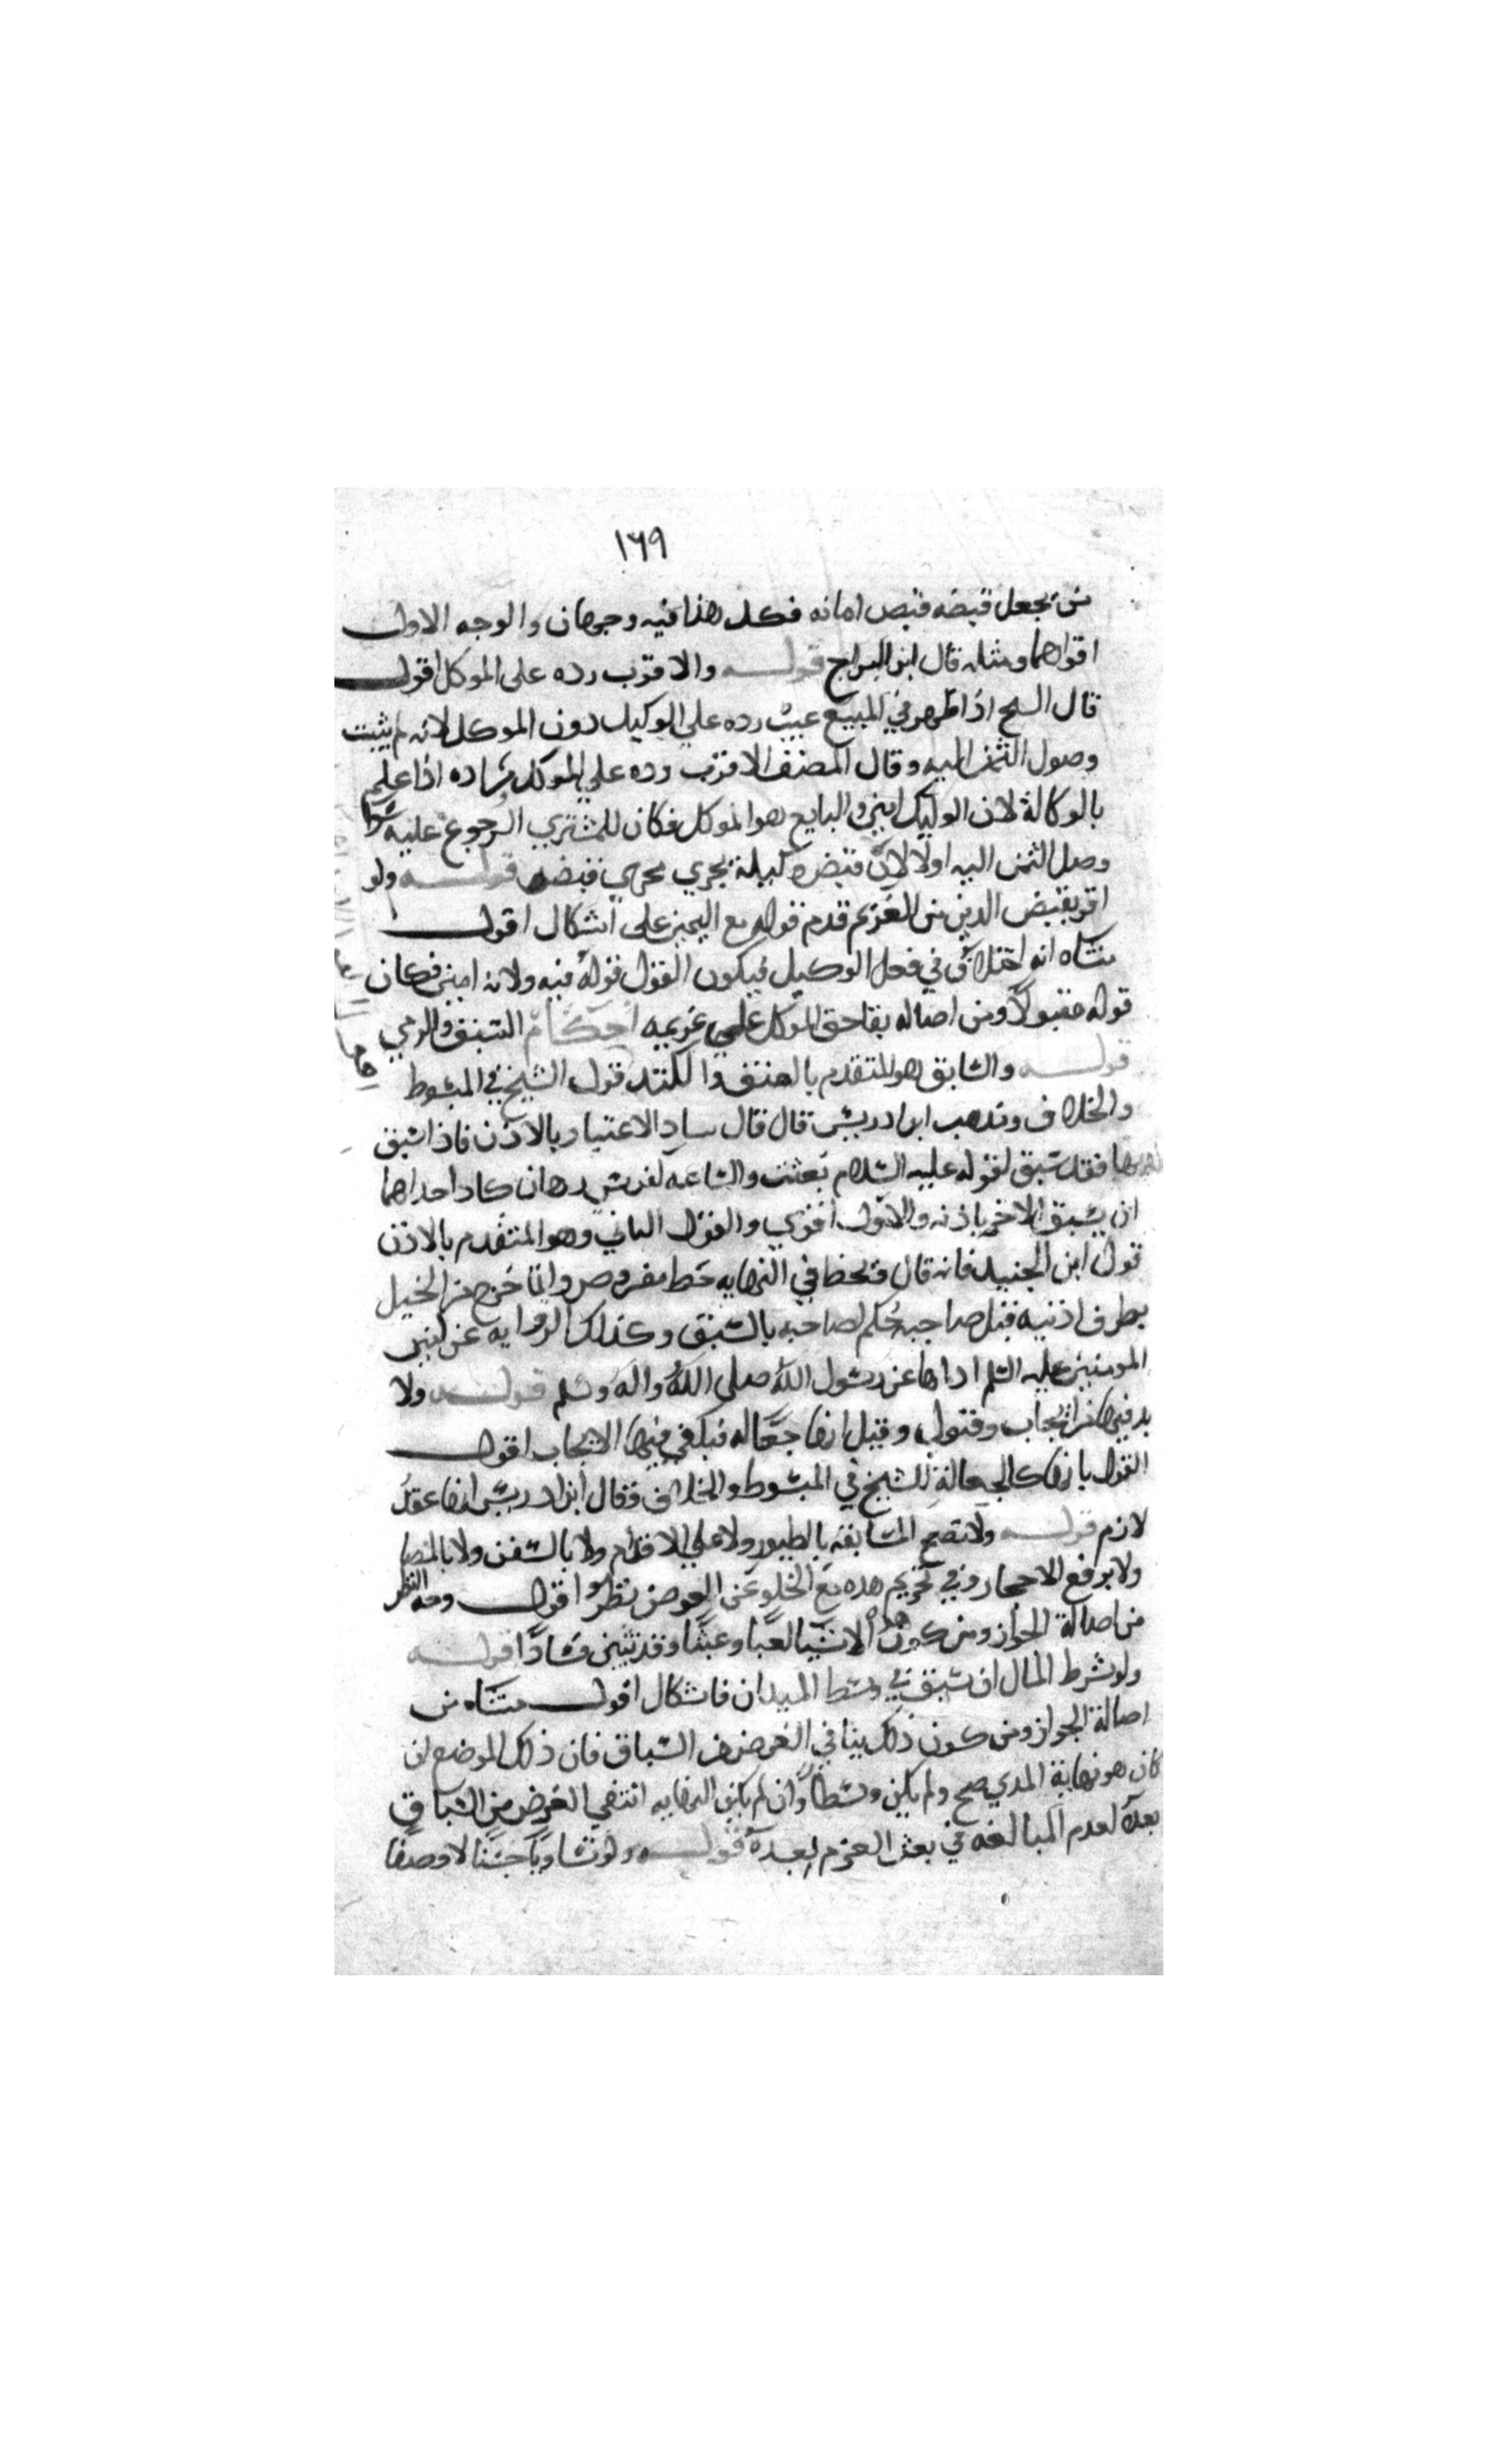 ١٦٩
من يجعل قبضه قبض امانه فكل هذا فيه وجهان والوجه الاول
اقواهما ومثله قال ابن البراج قوله والاقرب رده على الموكل اقول
قال الشيخ اذا ظهر في المبيع عيب رده علي الوكيل دون الموكل لانه لم يثبت
وصول الثمن اليه وقال المصنف الاقرب رده علي الموكل مراده اذا علم
بالوكالة لان الوكيل امين والبايع هو الموكل فكان للمشتري الرجوع عليه سوا
وصل الثمن اليه اولا لان قبض وكيله يجري مجري قبضه قوله ولو
اقر بقبض الدين من الغريم قدم قوله مع اليمين على اشكال اقول
منشاه انه اختلاف في فعل الوكيل فيكون القول قوله فيه ولانه امين فكان
قوله مقبولا ومن اصاله بقا حق الموكل علي غريمه احكام السبق والرمي
قوله والسابق هو المتقدم بالعنق والكتد قول الشيخ في المبسوط
والخلاف ومذهب ابن ادريس قال قال الاعتبار بالاذن فاذا سبق
بها فقد سبق لقوله عليه السلام بعثت والساعه كفرسي رهان كاد احداهما
ان يسبق الاخر باذنه والاول اقوي والقول الثاني وهو المتقدم بالاذن
قول ابن الجنيد فانه قال في النهايه خط مفروض وانما خرج من الخيل
بطرف اذنيه قبل صاحبه حكم لصاحبه بالسبق وكذلك الروايه عن امير
المومنين عليه السلم اداها عن رسول الله صلى الله واله وسلم قوله ولا
بد فيها من ايجاب وقبول وقيل انها جعاله فيكفي فيها الايجاب اقول
القول بانها كالجعالة للشيخ في المبسوط والخلاف وقال ابن ادريس انها عقد
لازم قوله ولا تصح المسابقه بالطيور ولا علي الاقدام ولا بالسفن ولا بالمصا
ولا برفع الاحجار وفي تحريم هذه مع الخلو عن العوض نظر اقول وجه النظر
من اصالة الجواز ومن كون هذه الاشيا لعبا وعبثا وقد تبين فسادا قوله
ولو شرط المال ان سبق في وسط الميدان فاشكال اقول منشاه من
اصالة الجواز ومن كون ذلك ينافي الغرض من السباق فان ذلك الموضع ان
كان هو نهاية المدي صح ولم يكن وسطا وان لم يكن النهايه انتفي الغرض من السباق
بعده لعدم المبالغه في بعث العزم بعده قوله ولو تساويا جنسا لا وصفا